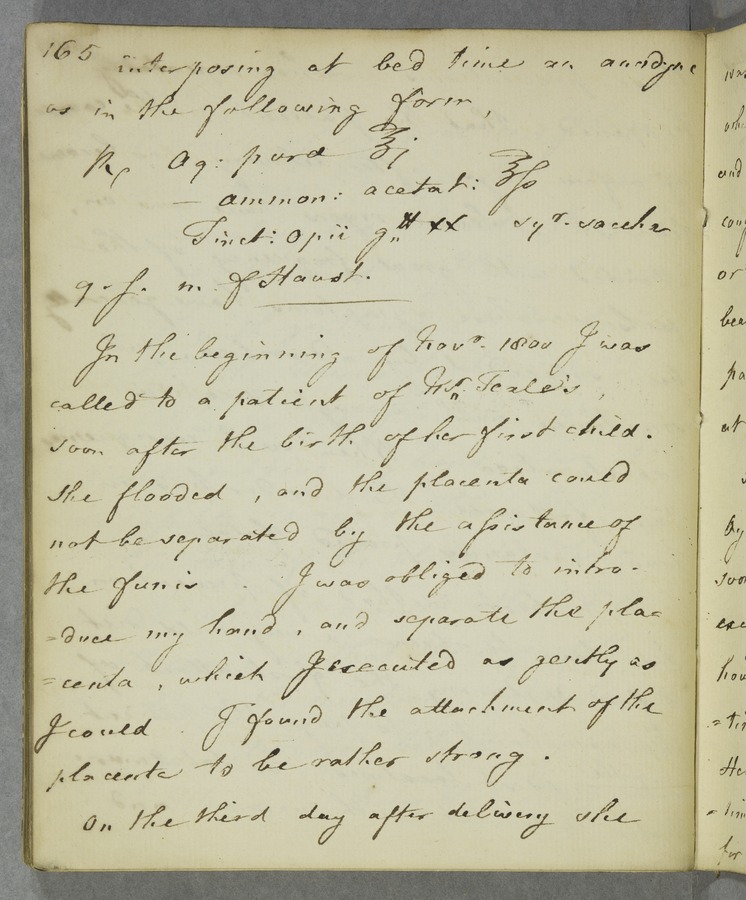 165 interposing at bed time an anodyne
as in the following form,
℞ Aq: purae ℥j
— ammon: acetat: ℥ſs
Tinct: Opii gtt xx syr. sacchar
q. s. m. f Haust.
In the beginning of Novr. 1800 I was
called to a patient of Mr. Teale's,
soon after the birth of her first child.
she flooded, and the placenta could
not be separated by the assistance of
the funis. I was obliged to intro-
=duce my hand, and separate the pla=
=centa, which I executed as gently as
I could. I found the attachment of the
placenta to be rather strong.
On the third day after delivery she